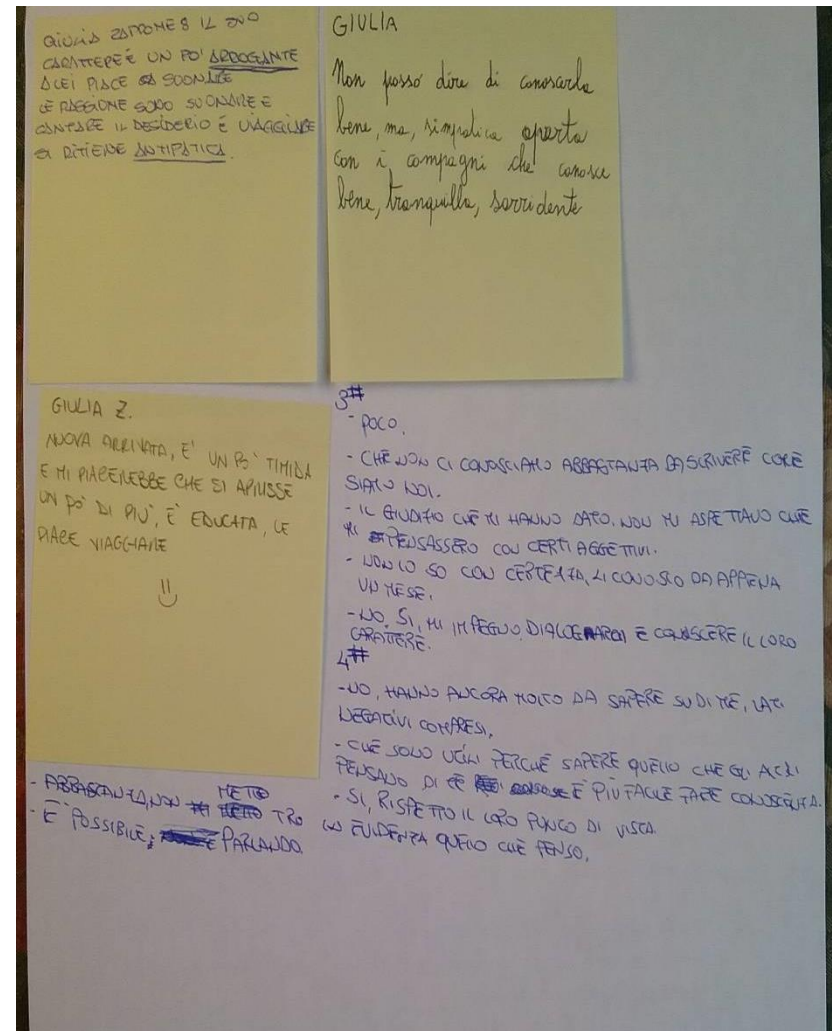 GIULIA ZAPPONE 8 IL SUO
CARATTERE È UN PO' ARROGANTE
A LEI PIACE SUONARE
LE PASSIONE SONO SUONARE E
CANTARE IL DESIDERIO È VIAGGIARE
SI RITIENE ANTIPATICA.
GIULIA
Non posso dire di conoscerla
bene, ma, simpatica aperta
con i compagni che conosce
bene, tranquilla, sorridente
GIULIA Z.
NUOVA ARRIVATA, E' UN PO' TIMIDA
E MI PIACEREBBE CHE SI APRISSE
UN PO' DI PIU', E' EDUCATA, LE
PIACE VIAGGIARE
3#
- POCO.
- CHE NON CI CONOSCIAMO ABBASTANZA DA SCRIVERE COME
SIAMO NOI.
- IL GIUDIZIO CHE MI HANNO DATO. NON MI ASPETTAVO CHE
MI PENSASSERO CON CERTI AGGETTIVI.
- NON LO SO CON CERTEZZA, LI CONOSCO DA APPENA
UN MESE.
- NO, SI, MI IMPEGNO, DIALOGARCI E CONOSCERE IL LORO
CARATTERE.
4#
- NO, HANNO ANCORA MOLTO DA SAPERE SU DI ME, LATI
NEGATIVI COMPRESI,
- CHE SONO UTILI PERCHÉ SAPERE QUELLO CHE GLI ALTRI
PENSANO DI TE È PIÙ FACILE FARE CONOSCENZA.
- SI, RISPETTO IL LORO PUNTO DI VISTA
- ABBASTANZA, NON METTO TRO IN EVIDENZA QUELLO CHE PENSO.
- È POSSIBILE, PARLANDO.